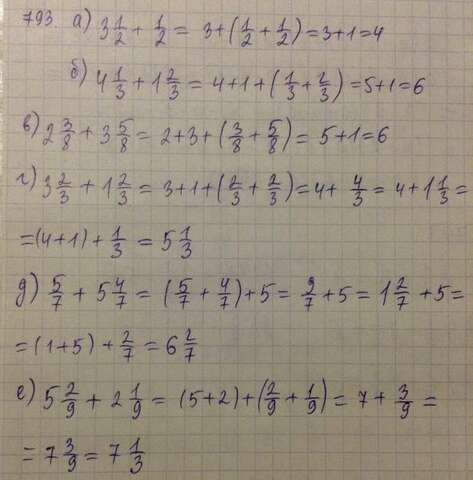 793. а) 3 1/2 + 1/2 = 3+(1/2 + 1/2)=3+1=4
б) 4 1/3 + 1 2/3 = 4+1+(1/3 + 2/3)=5+1=6
в) 2 3/8 + 3 5/8 = 2+3+(3/8 + 5/8)= 5+1=6
г) 3 2/3 + 1 2/3 = 3+1+(2/3 + 2/3)=4+ 4/3 = 4+1 1/3 =
=(4+1)+ 1/3 = 5 1/3
д) 5/7 + 5 4/7 = (5/7 + 4/7)+5= 9/7 +5= 1 2/7 +5=
= (1+5) + 2/7 = 6 2/7
е) 5 2/9 + 2 1/9 = (5+2)+(2/9 + 1/9)= 7+ 3/9 =
= 7 3/9 = 7 1/3